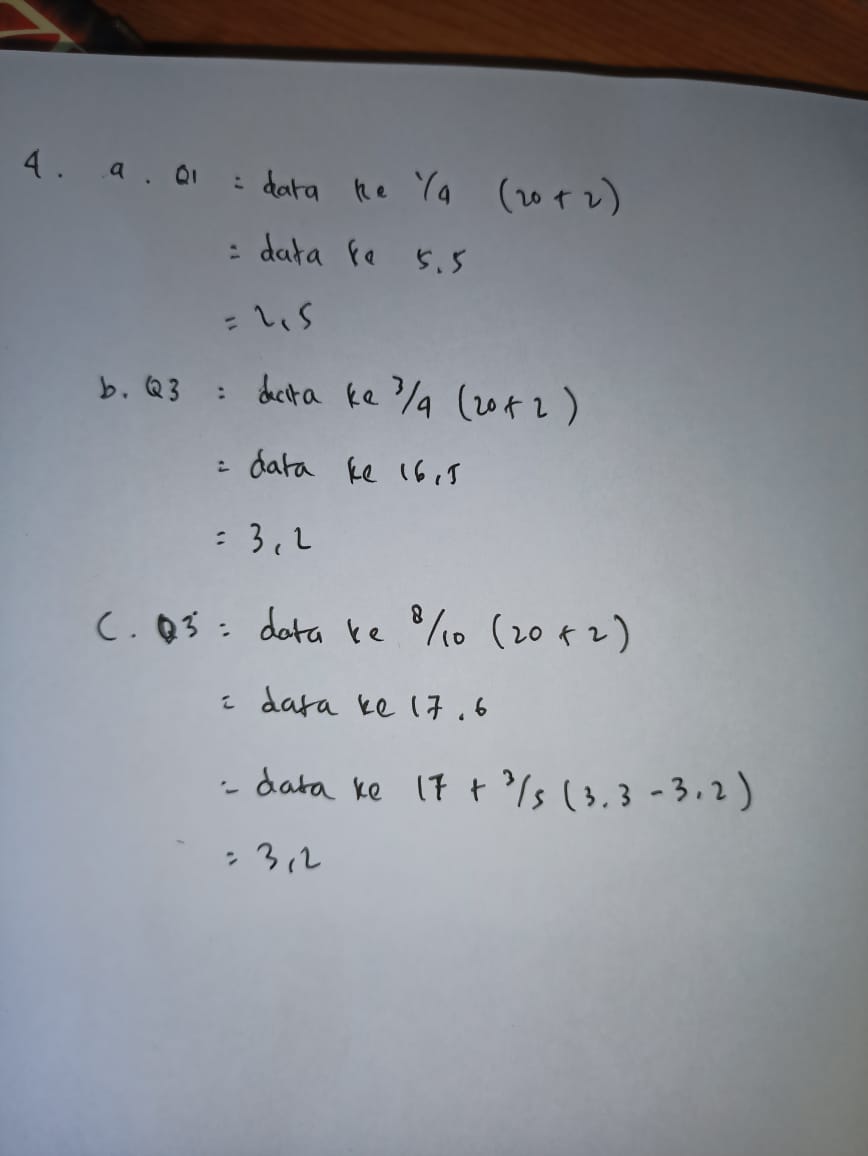 4. a. Q1 = data ke 1/4 (20 + 2)
= data ke 5.5
= 2,5
b. Q3 : data ke 3/4 (20 + 2)
= data ke 16,5
= 3,2
C. Q3 = data ke 8/10 (20 + 2)
= data ke 17.6
= data ke 17 + 3/5 (3.3 - 3.2)
= 3,2